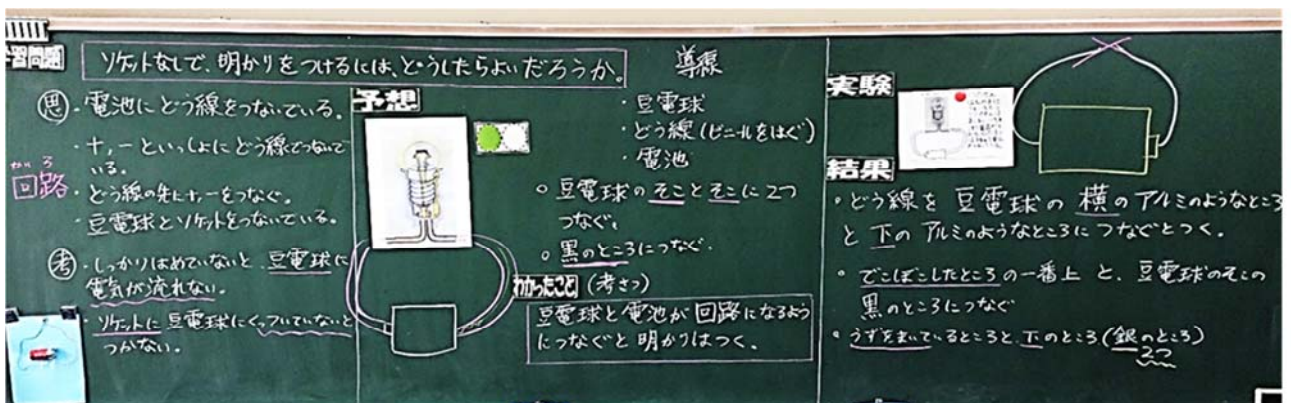 学習問題
ソケットなしで、明かりをつけるには、どうしたらよいだろうか。
思
・電池にどう線をつないでいる。
・+,-といっしょにどう線でつないで
いる。
かいろ
回路
・どう線の先に+,-をつなぐ。
・豆電球とソケットをつないでいる。
考
・しっかりはめていないと、豆電球に
電気が流れない。
・ソケットに豆電球にくっついていないと
つかない。
予想
導線
・豆電球
・どう線(ビニールをはぐ)
・電池
○豆電球のそことそこに2つ
つなぐ。
○黒のところにつなぐ。
わかったこと(考さつ)
豆電球と電池が回路になるよう
につなぐと明かりはつく。
実験
結果
・どう線を豆電球の横のアルミのようなところ
と下のアルミのようなところにつなぐとつく。
・でこぼこしたところの一番上と、豆電球のそこの
黒のところにつなぐ
・うずをまいているところと下のところ(銀のところ)
2つ